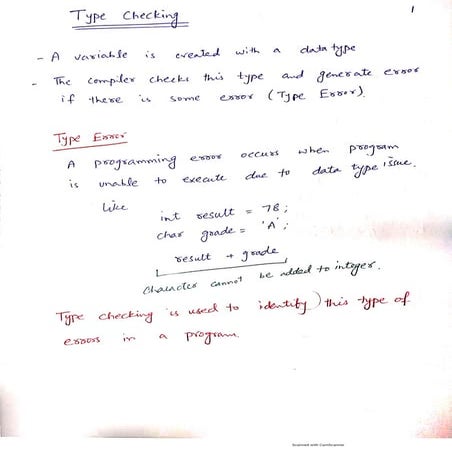 Type Checking
1
- A variable is created with a data type
- The compiler checks this type and generate error
if there is some error (Type Error).
Type Error
A programming error occurs when program
is unable to execute due to data type issue.
Like
int result = 78;
char grade = 'A';
result + grade
Character cannot be added to integer.
Type checking is used to identify) this type of
errors in a program.
Scanned with CamScanner